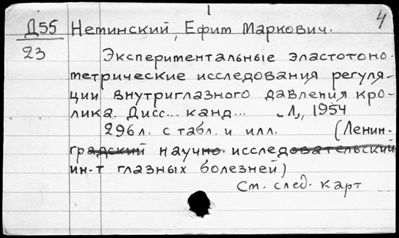 1
4
Д55 Нетинский, Ефим Маркович.
23 Экспериментальные эластотоно-
метрические исследования регуля-
ции внутриглазного давления кро-
лика. Дисс... канд... Л., 1954
296л. с табл. и илл. (Ленин-
градский научно-исследовательский
ин-т глазных болезней)
См. след. карт